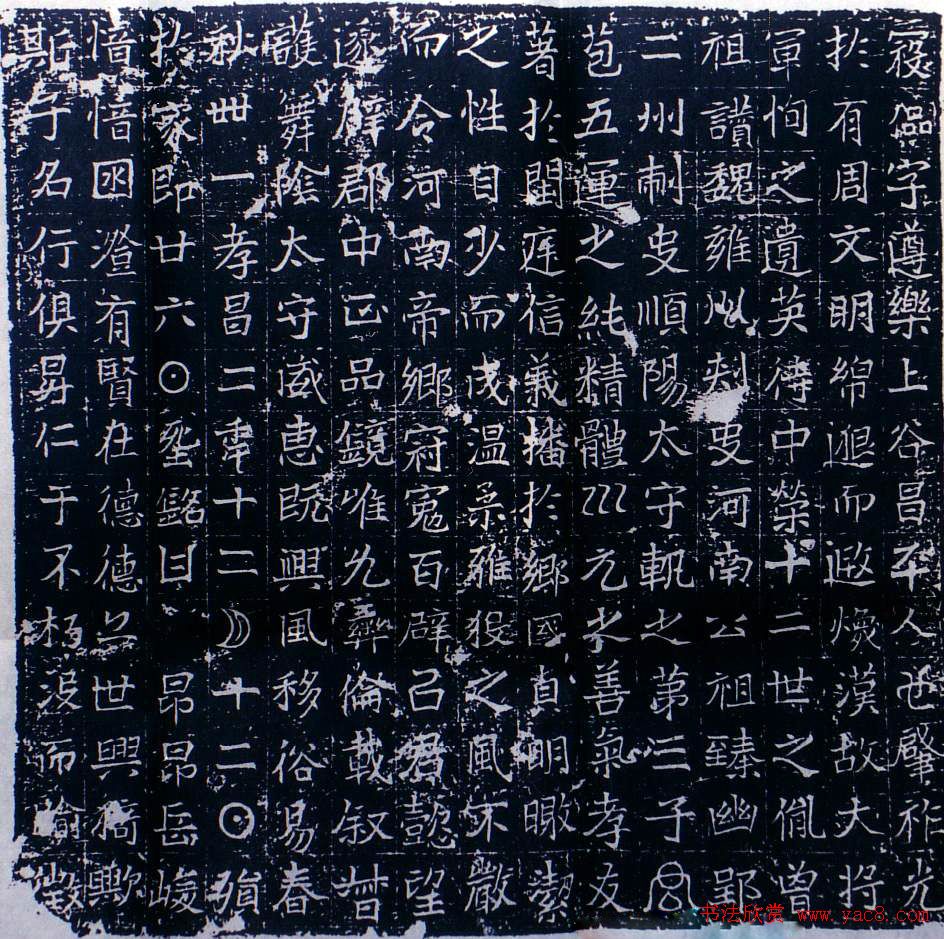 寇偘字遵樂上谷昌平人也肇祚光
扵有周文明綿遐而煥漢故夫将
軍恂之遺英侍中榮十二世之胤曾
祖讃魏雍州刾史河南公祖臻幽郢
二州刺史順陽太守軌之第三子
苞五運之純精體巛元之善氣孝友
著扵閨庭信義播扵鄉國貞明瞰潔
之性自少而成温柔雅之風不嚴
而合河南帝鄉冠冤百辟己君懿望
遂辟郡中正品鏡唯允彝倫載叙暜
護舞陰太守威恵既興風移俗易春
秋卌一孝昌二年十二月十二☉殞
扵家即廿六☉塟銘曰 昂昂岳峻
愔愔囦澄有賢在德德世興猗歟
斯子名行俱昇仁于不朽没而
书法欣赏 www.yac8.com